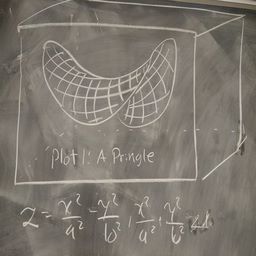 Plot 1: A Pringle
z = x²/a² - y²/b², x²/a² + y²/b² ≤ 1